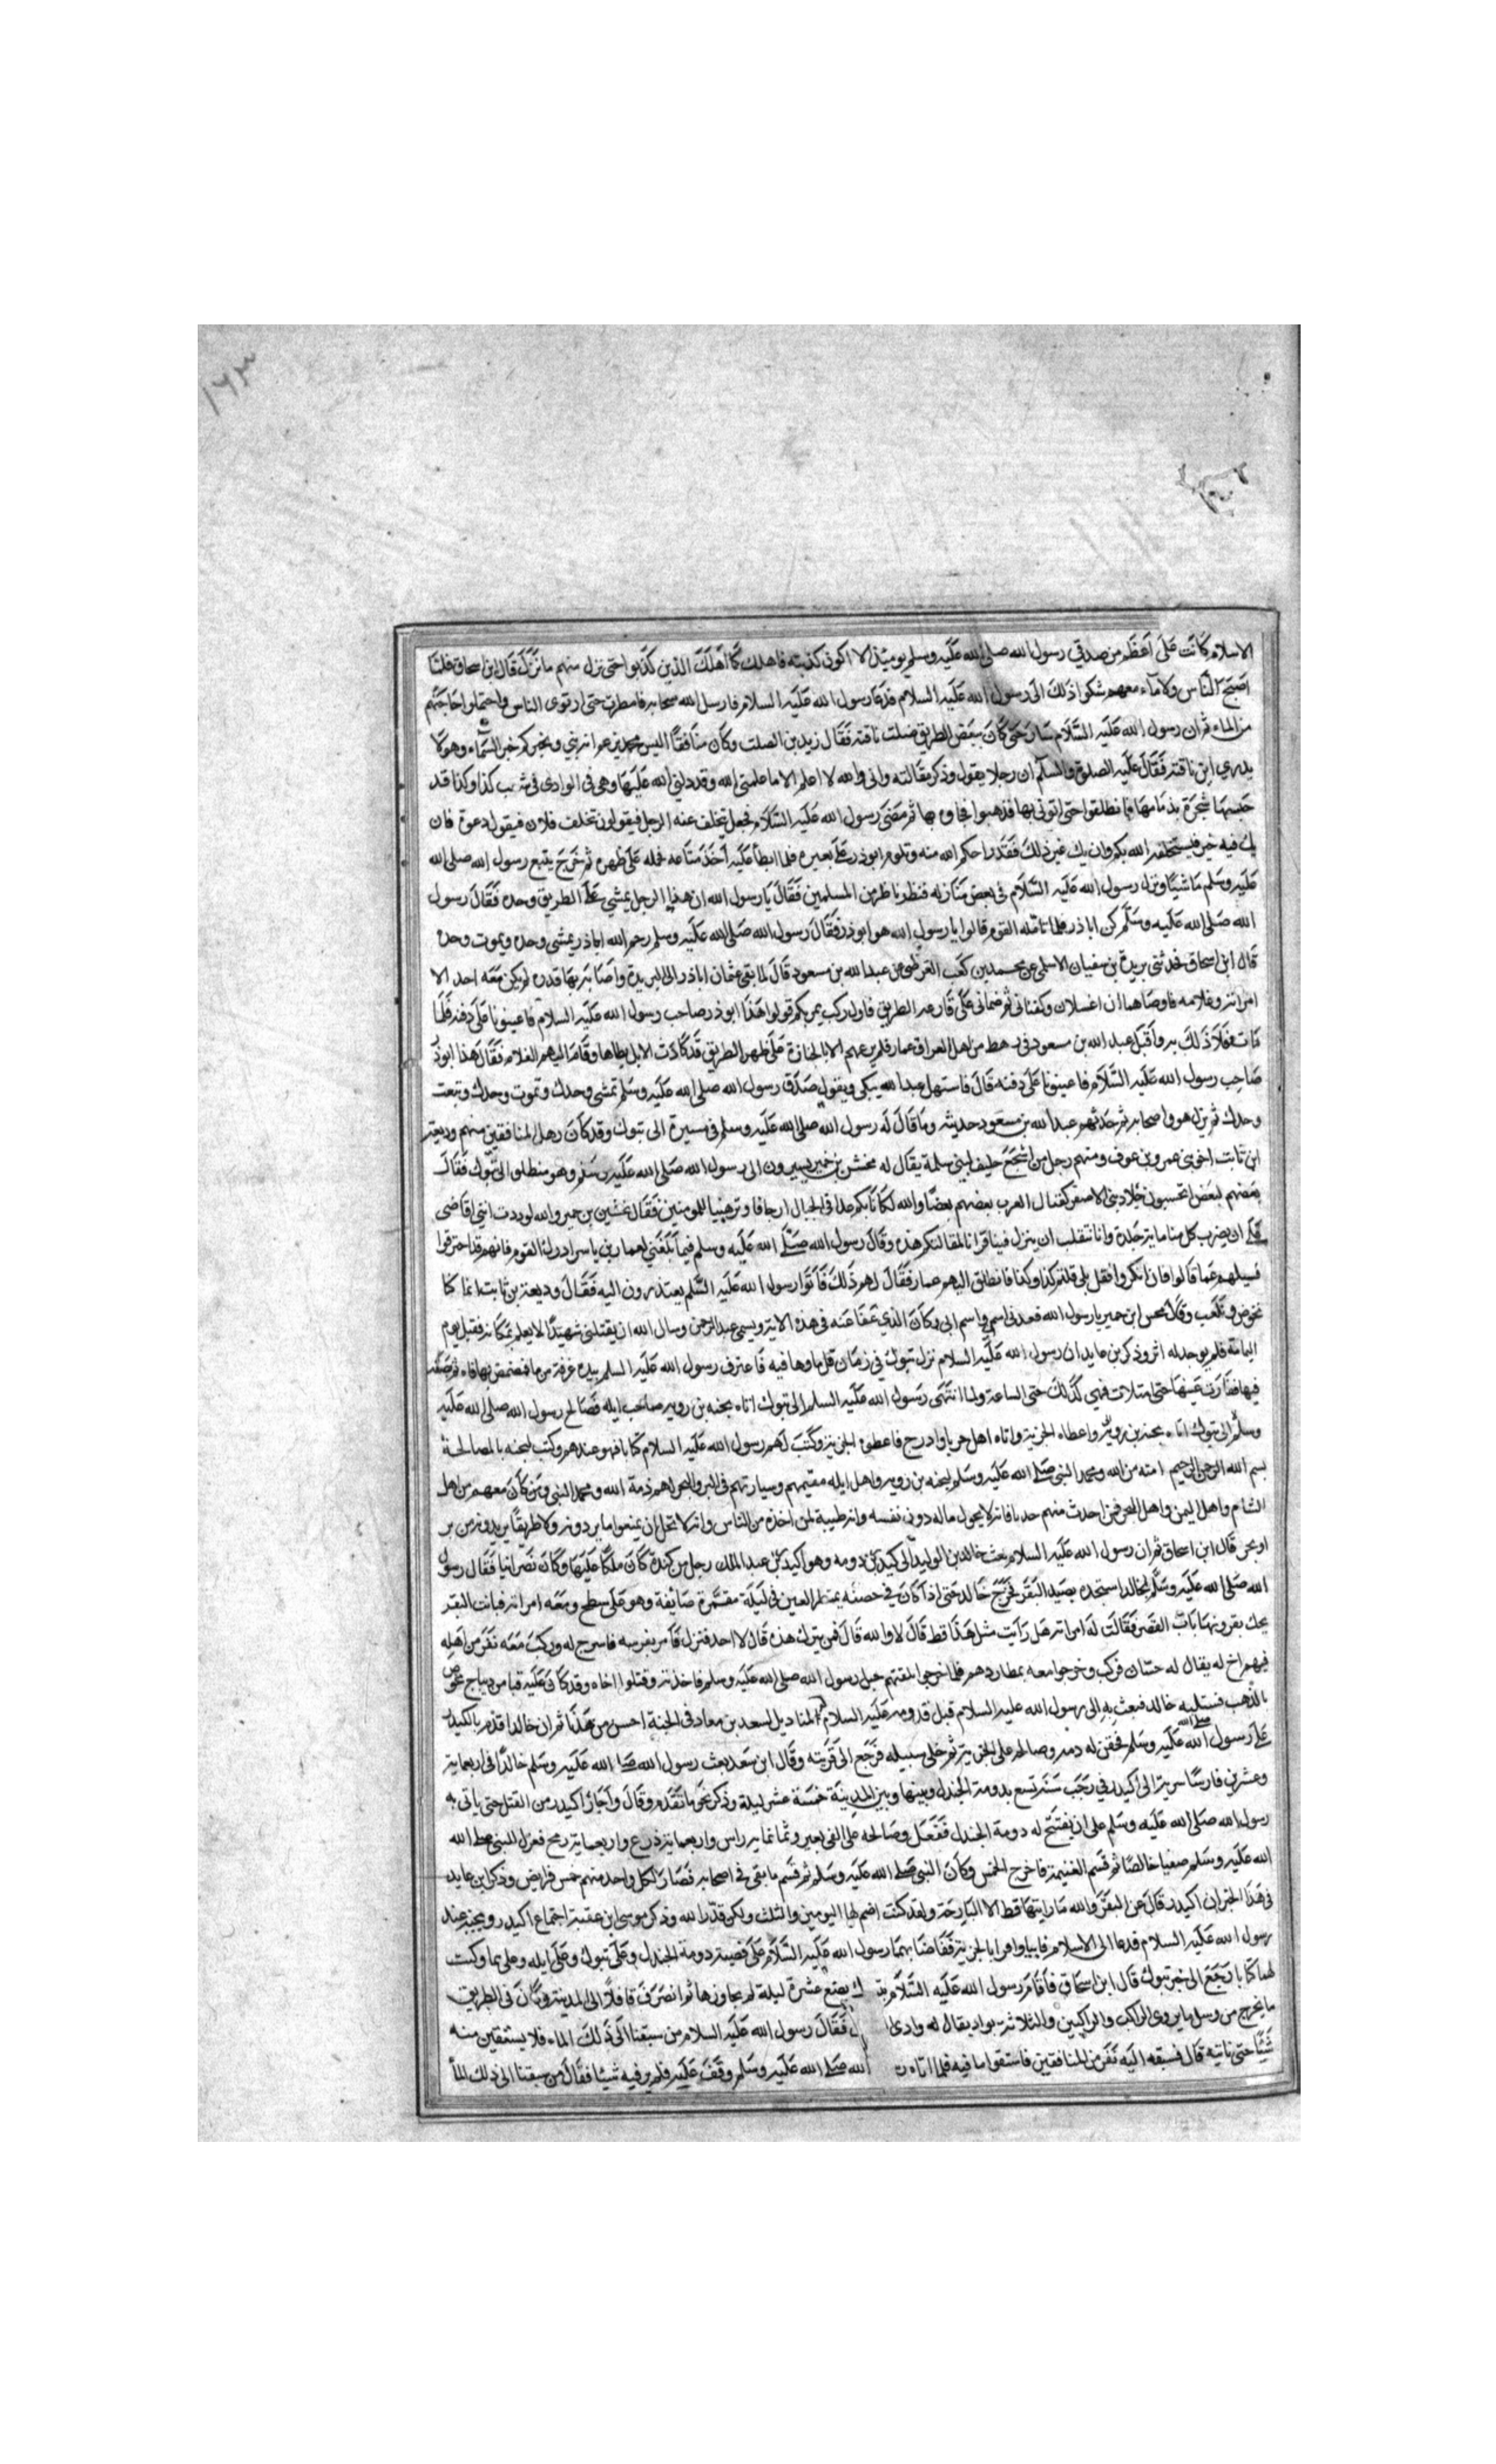 ١٦٣
الاسلام كانت على اعظم من صدقي رسول الله صلى الله عليه وسلم يوميذ الا اكون كذبته فاهلك كما اهلك الذين كذبوا حتى نزل منهم ما نزل قال ابن اسحاق فلما
اصبح الناس ولا ماء معهم شكوا ذلك الى رسول الله عليه السلام فدعا رسول الله عليه السلام فارسل الله سحابه فامطرت حتى ارتوى الناس واحتملوا حاجتهم
من الماء ثم ان رسول الله عليه السلام سار حتى كان ببعض الطريق ضلت ناقته فقال زيد بن الصلت وكان منافقا اليس محمد يزعم انه نبي ويخبركم خبر السماء وهو لا
يدري اين ناقته فقال عليه الصلوة والسلام ان رجلا يقول وذكر مقالته واني والله لا اعلم الا ما علمني الله وقد دلني الله عليها وهي في الوادي في شعب كذا وكذا قد
حبستها شجرة بزمامها فانطلقوا حتى اتوني بها فذهبوا فجاؤ بها ثم مضى رسول الله عليه السلام فجعل يتخلف عنه الرجل فيقولون تخلف فلان فيقول دعوه فان
يك فيه خير فيستخلفه الله بكم وان يك غير ذلك فقد اراحكم الله منه وتلوم ابوذر على بعيره فلما ابطأ عليه اخذ متاعه فحمله على ظهره ثم خرج يتبع رسول الله صلى الله
عليه وسلم ماشيا ونزل رسول الله عليه السلام في بعض منازله فنظر ناظر من المسلمين فقال يا رسول الله ان هذا الرجل يمشي على الطريق وحده فقال رسول
الله صلى الله عليه وسلم كن اباذر فلما تامله القوم قالوا يا رسول الله هو ابوذر فقال رسول الله صلى الله عليه وسلم رحم الله اباذر يمشي وحده ويموت وحده
قال ابن اسحاق فحدثني بريدة بن سفيان الاسلمي عن محمد بن كعب القرظي عن عبد الله بن مسعود قال لما نفى عثمان اباذر الى الربدة واصابه بها قدره لم يكن معه احد الا
امراته وغلامه فاوصاهما ان اغسلاني وكفناني ثم ضعاني على قارعة الطريق فاول ركب يمر بكم قولوا هذا ابوذر صاحب رسول الله عليه السلام فاعينونا على دفنه فلما
مات فعلا ذلك به واقبل عبد الله بن مسعود في رهط من اهل العراق عمار فلم يرعهم الا بالجنازة على ظهر الطريق قد كادت الابل يطاها وقام اليهم الغلام فقال هذا ابوذر
صاحب رسول الله عليه السلام فاعينونا على دفنه قال فاستهل عبد الله يبكي ويقول صدق رسول الله صلى الله عليه وسلم تمشي وحدك وتموت وحدك وتبعث
وحدك ثم نزل هو واصحابه ثم حدثهم عبد الله بن مسعود حديثه وما قال له رسول الله صلى الله عليه وسلم في مسيره الى تبوك وقد كان رهط المنافقين منهم وديعة
ابن ثابت اخو بني عمرو بن عوف ومنهم رجل من اشجع حليف لبني سلمة يقال له مخشن بن حمير يسيرون الى رسول الله صلى الله عليه وسلم وهو منطلق الى تبوك فقال
بعضهم لبعض اتحسبون جلاد بني الاصفر كقتال العرب بعضهم بعضا والله لكانا بكم غدا في الجبال ارجافا وترهيبا للمومنين فقال مخشن بن حمير والله لوددت انني اقاضى
على ان يضرب كل منا ماية جلدة وانا ننقلب ان ينزل فينا قرانا لمقالتكم هذه وقال رسول الله صلى الله عليه وسلم فيما بلغني لعمار بن ياسر ادرك القوم فانهم قد احترقوا
فسلهم عما قالوا فان انكروا فقل بلى قلتم كذا وكذا فانطلق اليهم عمار فقال لهم ذلك فأتوا رسول الله عليه السلم يعتذرون اليه فقال وديعة بن ثابت انما كنا
نخوض ونلعب وقال مخشن ابن حمير يا رسول الله قعد بي اسمي واسم ابي وكان الذي عفا عنه في هذه الاية وسمي عبد الرحمن وسال الله ان يقتله شهيدا لا يعلم بمكانه فقتل يوم
اليمامة فلم يوجد له اثر وذكر بن عايد ان رسول الله عليه السلام نزل تبوك في زمان قل ماوها فيه فاغترف رسول الله عليه السلم بيده غرفة من ماء فمضمض بها فاه ثم بصقه
فيها ففارت عينها حتى امتلات فهي كذلك حتى الساعة ولما انتهى رسول الله عليه السلم الى تبوك اتاه يحنه بن روبه صاحب ايله فصالح رسول الله صلى الله عليه
وسلم الى تبوك اتاه يحنه بن روبة واعطاه الجزية واتاه اهل جربا وادرج فاعطوه الجزية وكتب لهم رسول الله عليه السلام كتابا فهو عندهم وكتب ليحنه بالمصالحة
بسم الله الرحمن الرحيم امنه من الله ومحمد النبي صلى الله عليه وسلم ليحنه بن روبه واهل ايله مقيمهم وسيارتهم في البر والبحر لهم ذمة الله ومحمد النبي ومن كان معهم من اهل
الشام واهل اليمن واهل البحر فمن احدث منهم حدثا فانه لا يحول ماله دون نفسه وانه طيبة لمن اخذه من الناس وانه لا يحل ان يمنعوا ما يردونه ولا طريقا يريدونه من بر
او بحر قال ابن اسحاق ثم ان رسول الله عليه السلام بعث خالد بن الوليد الى اكيدر دومه وهو اكيدر بن عبد الملك رجل من كندة كان ملكا عليها وكان نصرانيا فقال رسول
الله صلى الله عليه وسلم لخالد ستجده يصيد البقر فخرج خالد حتى اذا كان في حصنه بمنظر العين في ليلة مقمرة صائفة وهو على سطح ومعه امراته فباتت البقر
يحك بقرونها باب القصر فقالت له امراته هل رأيت مثل هذا قط قال لا والله قال فمن يترك هذه قال لا احد فنزل فأمر بفرسه فاسرج له وركب معه نفر من اهله
فيهم اخ له يقال له حسان فركب وخرجوا معه بمطاردهم فلما خرجوا تلقتهم خيل رسول الله صلى الله عليه وسلم فاخذته وقتلوا اخاه وقد كان عليه قبا من ديباج مخوص
بالذهب فستلبه خالد فبعث به الى رسول الله عليه السلام قبل قدومه عليه السلام المناديل لسعد بن معاد في الجنة احسن من هذا ثم ان خالدا قدم باكيدر
على رسول الله صلى الله عليه وسلم فحقن له دمه وصالحه على الجزية ثم خلى سبيله فرجع الى قريته وقال ابن سعد بعث رسول الله صلى الله عليه وسلم خالدا في اربعماية
وعشرين فارسا سرية الى اكيدر في رجب سنة تسع بدومة الجندل وبينها وبين المدينة خمسة عشر ليلة وذكر نحو ما تقدم وقال واجار اكيدر من القتل حتى ياتي به
رسول الله صلى الله عليه وسلم على ان يفتتح له دومة الجندل ففعل وصالحه على الفي بعير وثمانمايه راس واربعماية درع واربعماية رمح فعزل للنبي صلى الله
الله عليه وسلم صفيا خالصا ثم قسم الغنيمة فاخرج الخمس وكان النبي صلى الله عليه وسلم ثم قسم ما بقي في اصحابه فصار لكل واحد منهم خمس فرايض وذكر ابن عايد
في هذا الخبر ان اكيدر قال عن البقر والله ما رايتها قط الا البارحة ولقد كنت اضم لها اليومين والثلث ولكن قدر الله وذكر موسى ابن عقبة اجتماع اكيدر ويحنه عند
رسول الله عليه السلام فدعا الى الاسلام فابيا واقرا بالجزية فقاضا بهما رسول الله عليه السلام على قضية دومة الجندل وعلى تبوك وعلى ايله وعلى تيما وكتب
لهما كتابا رجع الى خبر تبوك قال ابن اسحاق فأقام رسول الله عليه السلام بتبوك بضع عشرة ليلة لم يجاوزها ثم انصرف قافلا الى المدينة وكان في الطريق
ما يخرج من وسل ما يروي الراكب والراكبين والثلاثة بواد يقال له وادي فقال رسول الله عليه السلام من سبقنا الى ذلك الماء فلا يستقين منه
شيئا حتى ناتيه قال فسبقه اليه نفر من المنافقين فاستقوا ما فيه فلما اتاه الله صلى الله عليه وسلم وقف عليه فلم ير فيه شيئا فقال من سبقنا الى ذلك الما